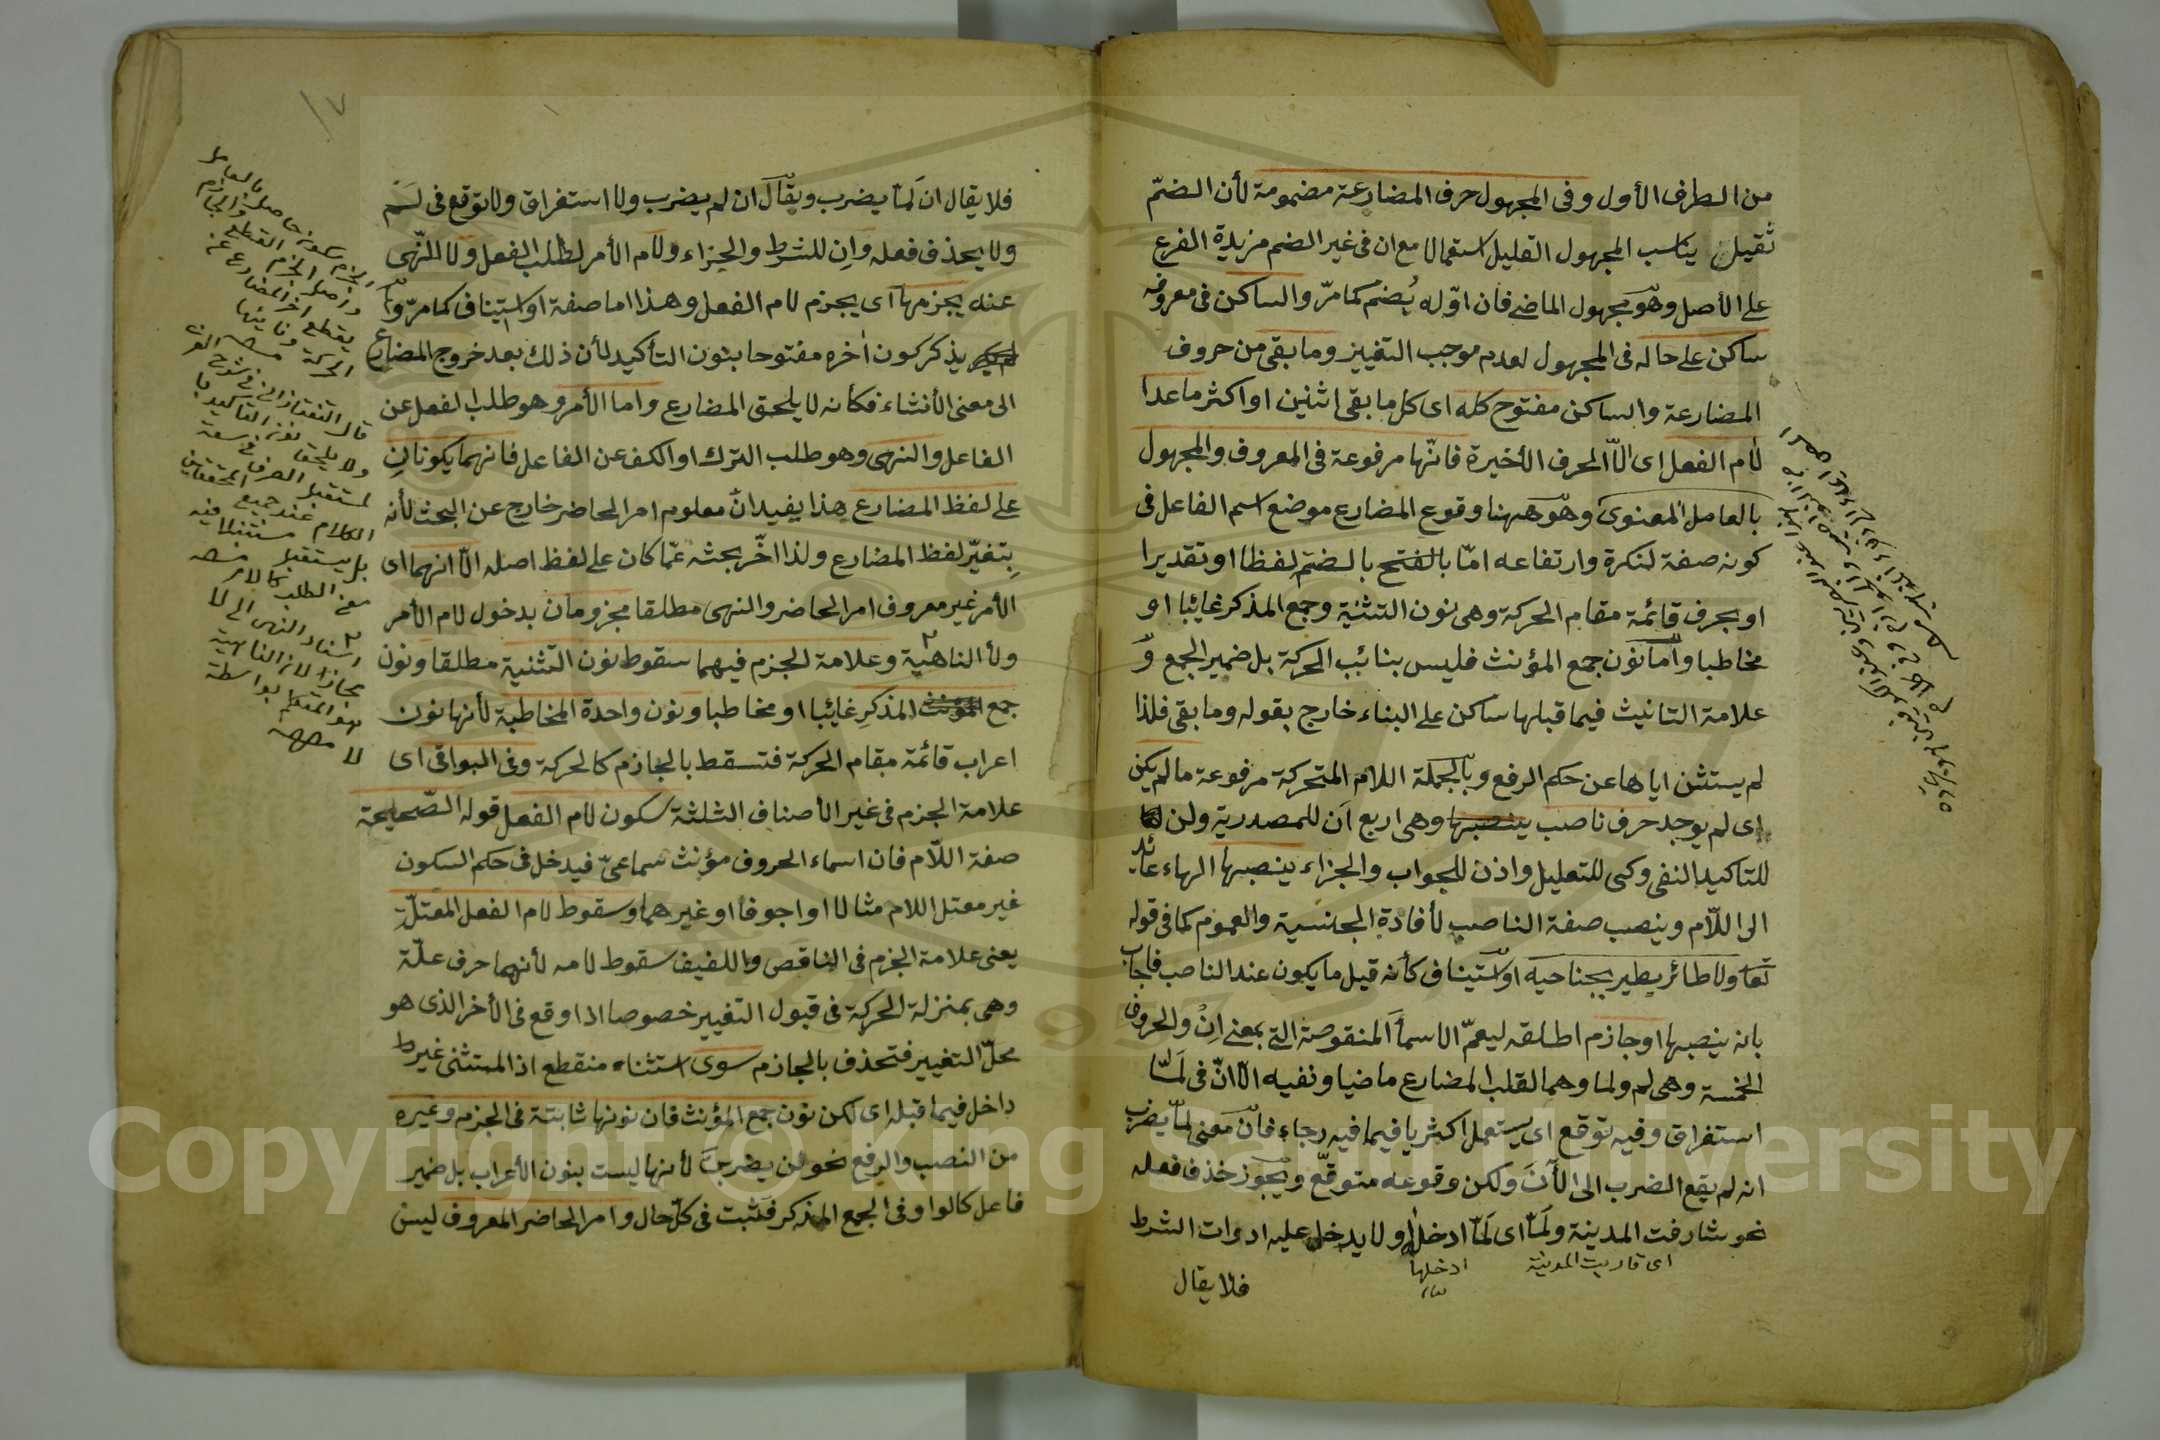 من الطرف الأول وفى المجهول حرف المضارعة مضمومة لأن الضمّ
ثقيل يناسب المجهول القليل استعمالا مع ان فى غير الضم مزيدة الفرع
على الأصل وهو مجهول الماضى فان اوّله يُضم كما مرّ والساكن فى معروفه
ساكن على حاله فى المجهول لعدم موجب التغيير وما بقى من حروف
المضارعة والساكن مفتوح كله اى كل ما بقى اثنين او اكثر ما عدا
لام الفعل اى الّا الحرف الأخيرة فانّها مرفوعة فى المعروف والمجهول
بالعامل المعنوى وهو ههنا وقوع المضارع موضع اسم الفاعل فى
كونه صفة لنكرة وارتفاعه امّا بالفتح بالضم لفظا او تقديرا
او بحرف قائمة مقام الحركة وهى نون التثنية وجمع المذكر غائبا او
مخاطبا واما نون جمع المؤنث فليس بنائب الحركة بل ضمير الجمع و
علامة التانيث فيما قبلها ساكن على البناء خارج بقوله وما بقى فلذا
لم يستثن اياها عن حكم الرفع وبالجملة اللام المتحركة مرفوعة ما لم يكن
اى لم يوجد حرف ناصب ينصبها وهى اربع اَن للمصدرية ولن
للتاكيد النفى وكى للتعليل واذن للجواب والجزاء ينصبها الهاء عائد
الى اللّام وينصب صفة الناصب لأفادة الجنسية والعموم كما فى قوله
تعا ولا طائر يطير بجناحيه او استيناف كأنه قيل ما يكون عند الناصب فاجاب
بانه ينصبها او جازم اطلقه ليعمّ الاسماَ المنقوصة التى بمعنى اِنْ والحروف
الخمسة وهى لم ولما وهما لقلب المضارع ماضيا ونفيه الّا انّ فى لَمّا
استغراق وفيه توقع اى يستعمل اكثريا فيما فيه رجاء فانّ معنى لمّا يضرب
انه لم يقع الضرب الى الآنَ ولكن وقوعه متوقّع ويجوز حذف فعله
نحو شارفت المدينة ولَمّا اى لَمّا ادخلها ولا يدخل عليه ادوات الشرط
اى قاربت المدينة
ادخلها
فلا يقال
١٧
فلا يقال ان لَمّا يضرب ويقال ان لم يضرب ولا استغراق ولا توقع فى لَم
ولا يحذف فعله واِن للشرط والجزاء ولام الأمر لطلب الفعل ولا للنّهى
عنه يجزمها اى يجزم لام الفعل وهذا اما صفة او استيناف كما مرّ و
لم يذكر كون اٰخره مفتوحا بنون التأكيد لأن ذلك بعد خروج المضارع
الى معنى الأنشاء فكأنه لا يلحق المضارع واما الأمر وهو طلب الفعل عن
الفاعل والنهى وهو طلب الترك او الكف عن الفاعل فانهما يكونانِ
على لفظ المضارع هذا يفيد انّ معلوم امر الحاضر خارج عن البحث لأنه
بتغيّر لفظ المضارع ولذا اخّر بحثه عمّا كان على لفظ اصله الّا انهما اى
الأمر غير معروف امر الحاضر والنهى مطلقا مجزومان بدخول لام الأمر
ولا الناهية وعلامة الجزم فيهما سقوط نون التثنية مطلقا ونون
جمع المذكرِ غايبا او مخاطبا ونون واحدة المخاطبة لأنها نون
اعراب قائمة مقام الحركة فتسقط بالجازم كالحركة وفى البواقى اى
علامة الجزم فى غير الأصناف الثلثة سكون لام الفعل قوله الصّحيحة
صفة اللّام فان اسماء الحروف مؤنث سماعىّ فيدخل فى حكم السكون
غير معتل اللام مثالا او اجوفا او غيرهما وسقوط لام الفعل المعتلّةِ
يعنى علامة الجزم فى الناقص واللفيف سقوط لامه لأنهما حرف علّة
وهى بمنزلة الحركة فى قبول التغيير خصوصا اذا وقع فى الأخر الذى هو
محلّ التغيير فتحذف بالجازم سوى استثناء منقطع اذ المستثنى غير
داخل فيما قبله اى لكن نون جمع المؤنث فان نونها ثابتة فى الجزم وغيره
من النصب والرفع نحو لن يضربنَ لأنها ليست بنون الأعراب بل ضمير
فاعل كالواو فى الجمع المذكر فتثبت فى كلّ حال وامر الحاضر المعروف ليس
قال التفتازانى فى شرح
ولا يلحقا نون التأكيد
الكلام عند جميع المحققين
بل يستقبل
معنى الطلب كالامر
اسناد النهى الى لا
مجازا لان الناهية
هو المتكلم بواسطة
لا
Copyright © King Saud University